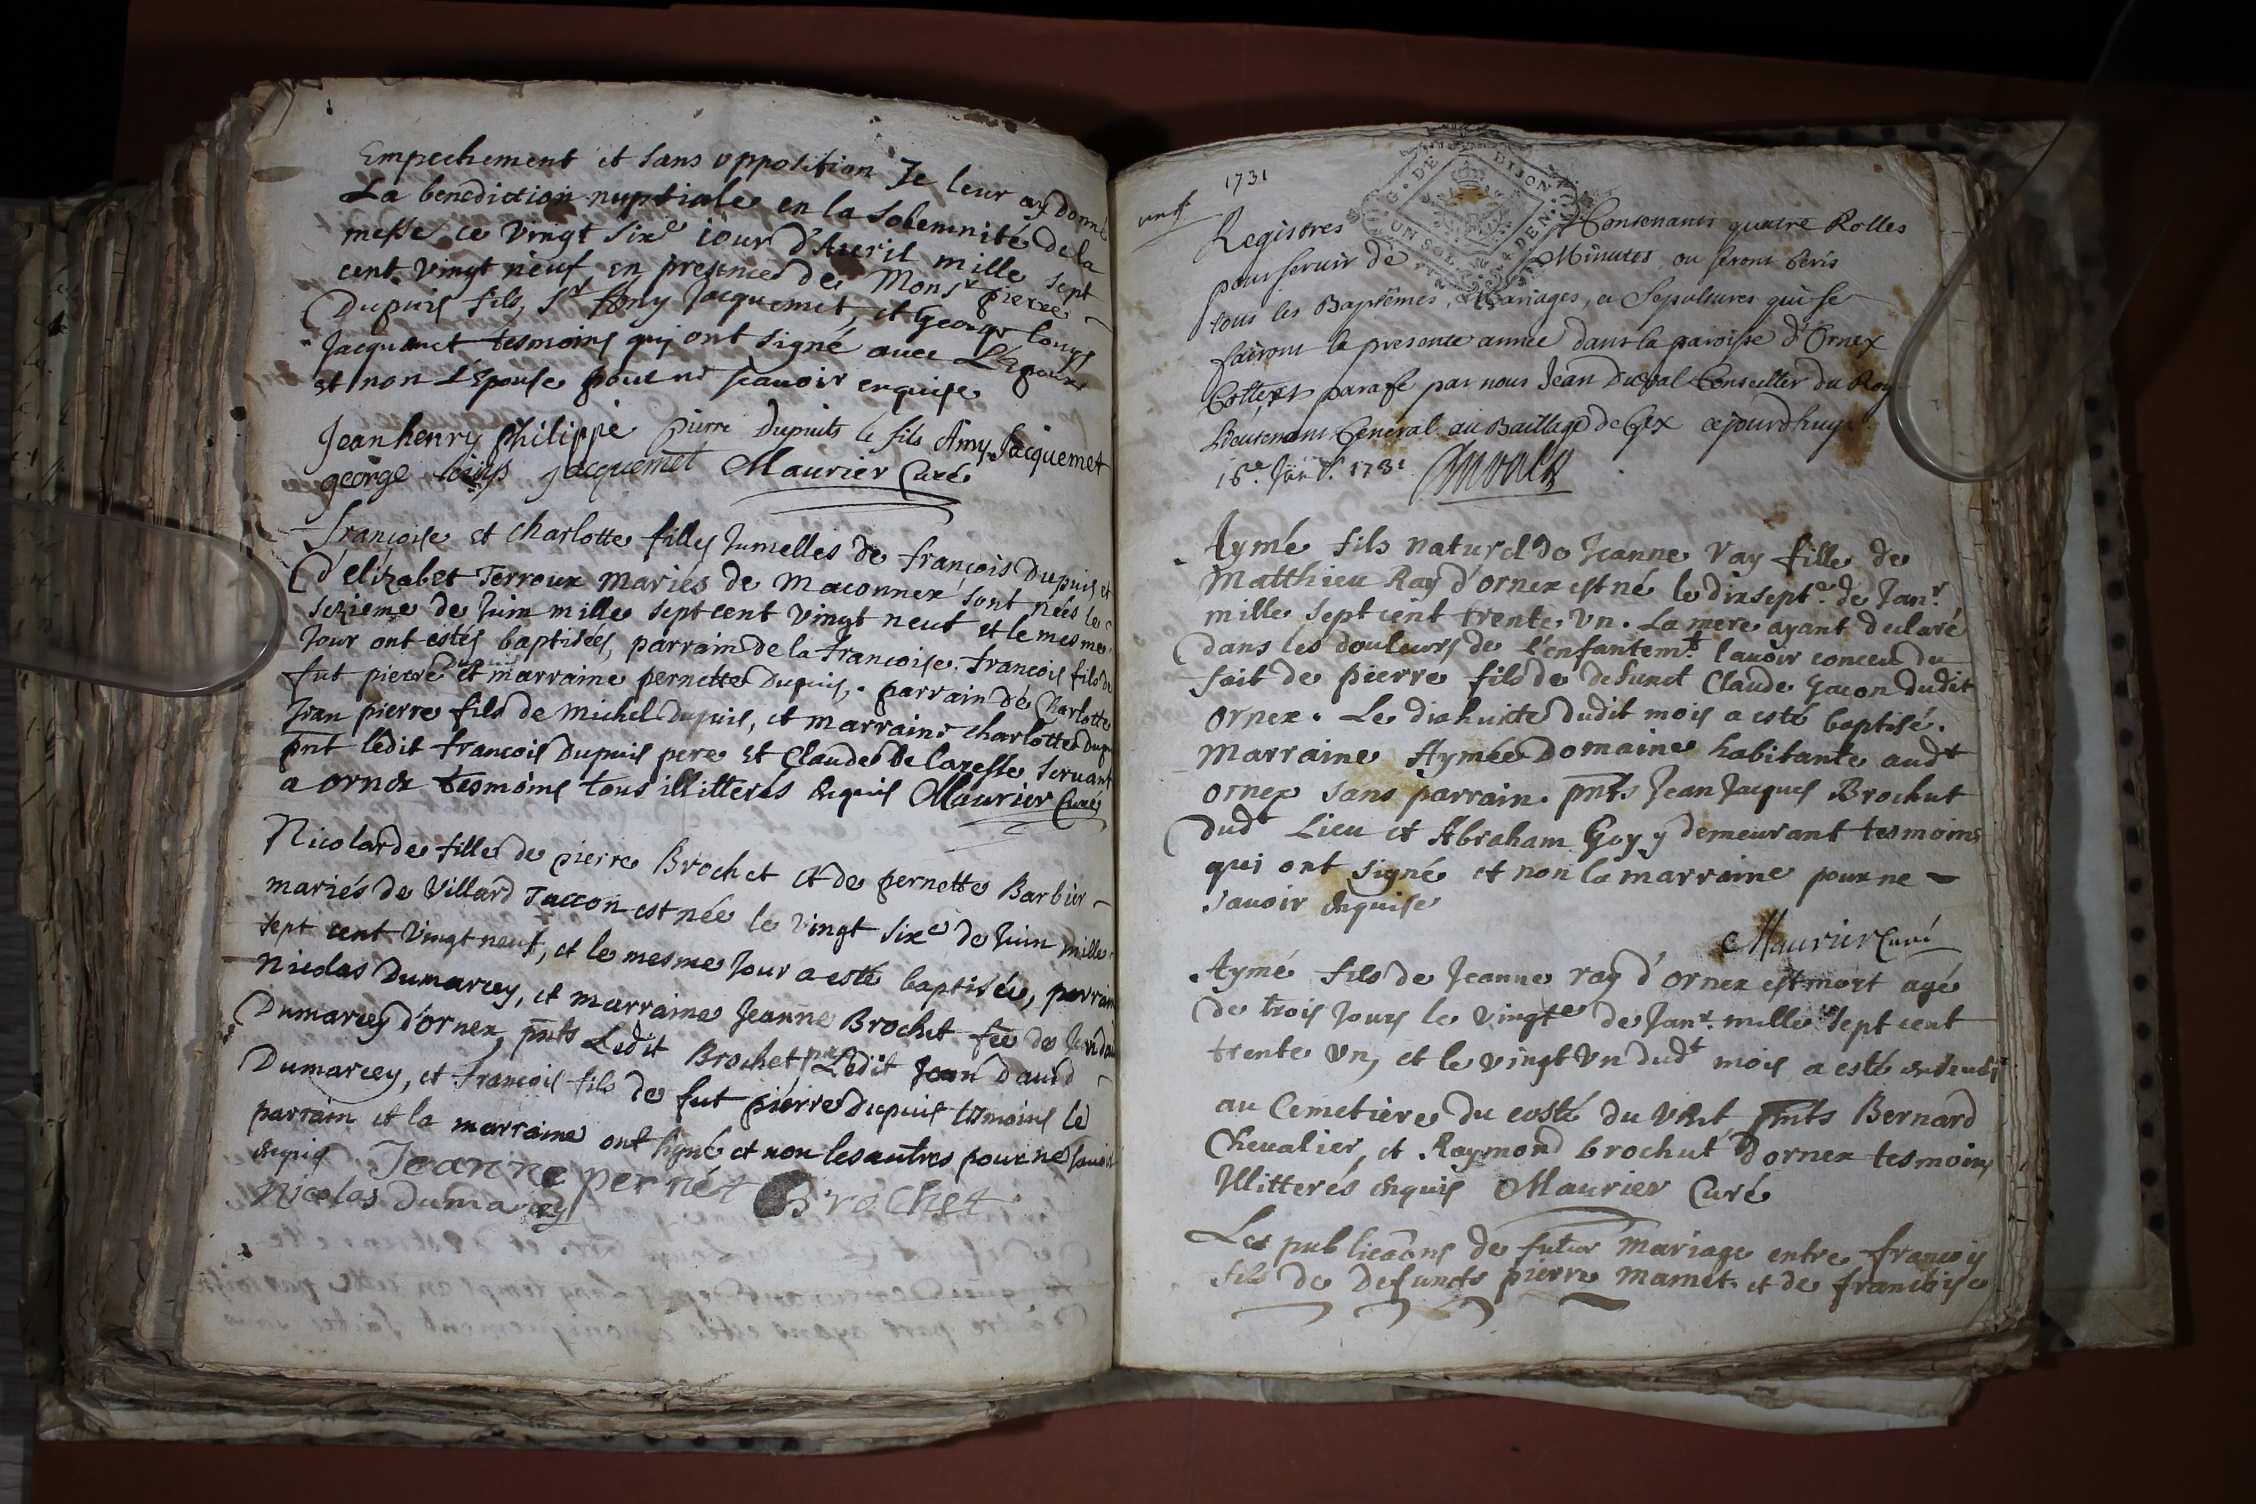 Empechement et sans opposition Je leur ay donné
La benediction nuptiale en la solemnité de la
messe ce vingt sixe iour d'Auril mille sept
cent vingt neuf en presence de Monsr pierre
Dupuis fils, Sr Amy Jacquemet, et George louys
Jacquemet tesmoins qui ont signé auec L'Epoux
et non L'Epouse pour ne scauoir enquise
Jean henry philippe pierre Dupuits le fils Amy Jacquemet
george louys jacquemet Maurier Curé
Francoise et Charlotte filles Jumelles de francois Dupuis et
d'elizabet Terroux mariés de Maconnex sont neés le
sezieme de Juin mille sept cent vingt neuf et le mesme
Jour ont estés baptisées, parrain de la francoise francois fils de
fut pierre et marraine pernette Dupuis, parrain de Charlotte
Jean pierre fils de Michel Dupuis, et marraine Charlotte
pnt ledit francois Dupuis pere et Claude De Servant
a ornex tesmoins tous illitterés enquis Maurier Curé
Nicolarde fille de pierre Brochet et de pernette Barbier
mariés de Villard Taccon est née le vingt sixe de Juin mille
sept cent vingt neuf, et le mesme Jour a esté baptisée, parrain
Nicolas Dumarcey, et marraine Jeanne Brochet fee de Jean
Dumarcey d'ornex, pnts Ledit Brochet pere Ledit Jean David
Dumarcey, et francois fils de fut pierre Dupuis tesmoins le
parrain et la marraine ont signé et non les autres pour ne sauoir
enquis Jeanne pernet Brochet
Nicolas dumarcey
1731
G. DE DIJON
UN SOL DEN.
Registres Contenants quatre Rolles
pour seruir de Minutes ou seront ecris
tous les Baptêmes, Mariages, et Sepultures qui se
fairont la presente année dans la paroisse d'Ornex
Cotté et parafé par nous Jean Duval Conseiller du Roy
Lieutenant General au Baillage de Gex cejourdhuy
16e Janr. 1731 Duval
Aymé fils naturel de Jeanne Ray fille de
Matthieu Ray d'ornex est né le dix septe de Janr.
mille sept cent trente un. La mere ayant declaré
dans les douleurs de l'enfantemt l'auoir conceu du
fait de pierre fils de defunct Claude Gacon dudit
ornex. Le dixhuitte dudit mois a esté baptisé.
Marraine Aymée Domaine habitante audt
ornex sans parrain. pnts Jean Jacques Brochut
dudt Lieu et Abraham Goy y demeurant tesmoins
qui ont signé et non la marraine pour ne
sauoir enquise
Maurier Curé
Aymé fils de Jeanne ray d'ornex est mort agé
de trois Jours le vingte de Janr. mille sept cent
trente un, et le vingt un dudt mois a esté enseueli
au Cemetiere du costé du vent, pnts Bernard
Chevalier, et Raymond brochut d'ornex tesmoins
Illitterés enquis Maurier Curé
Les publicaons de futur Mariage entre francois
fils de Defuncts pierre Mamet et de francoise